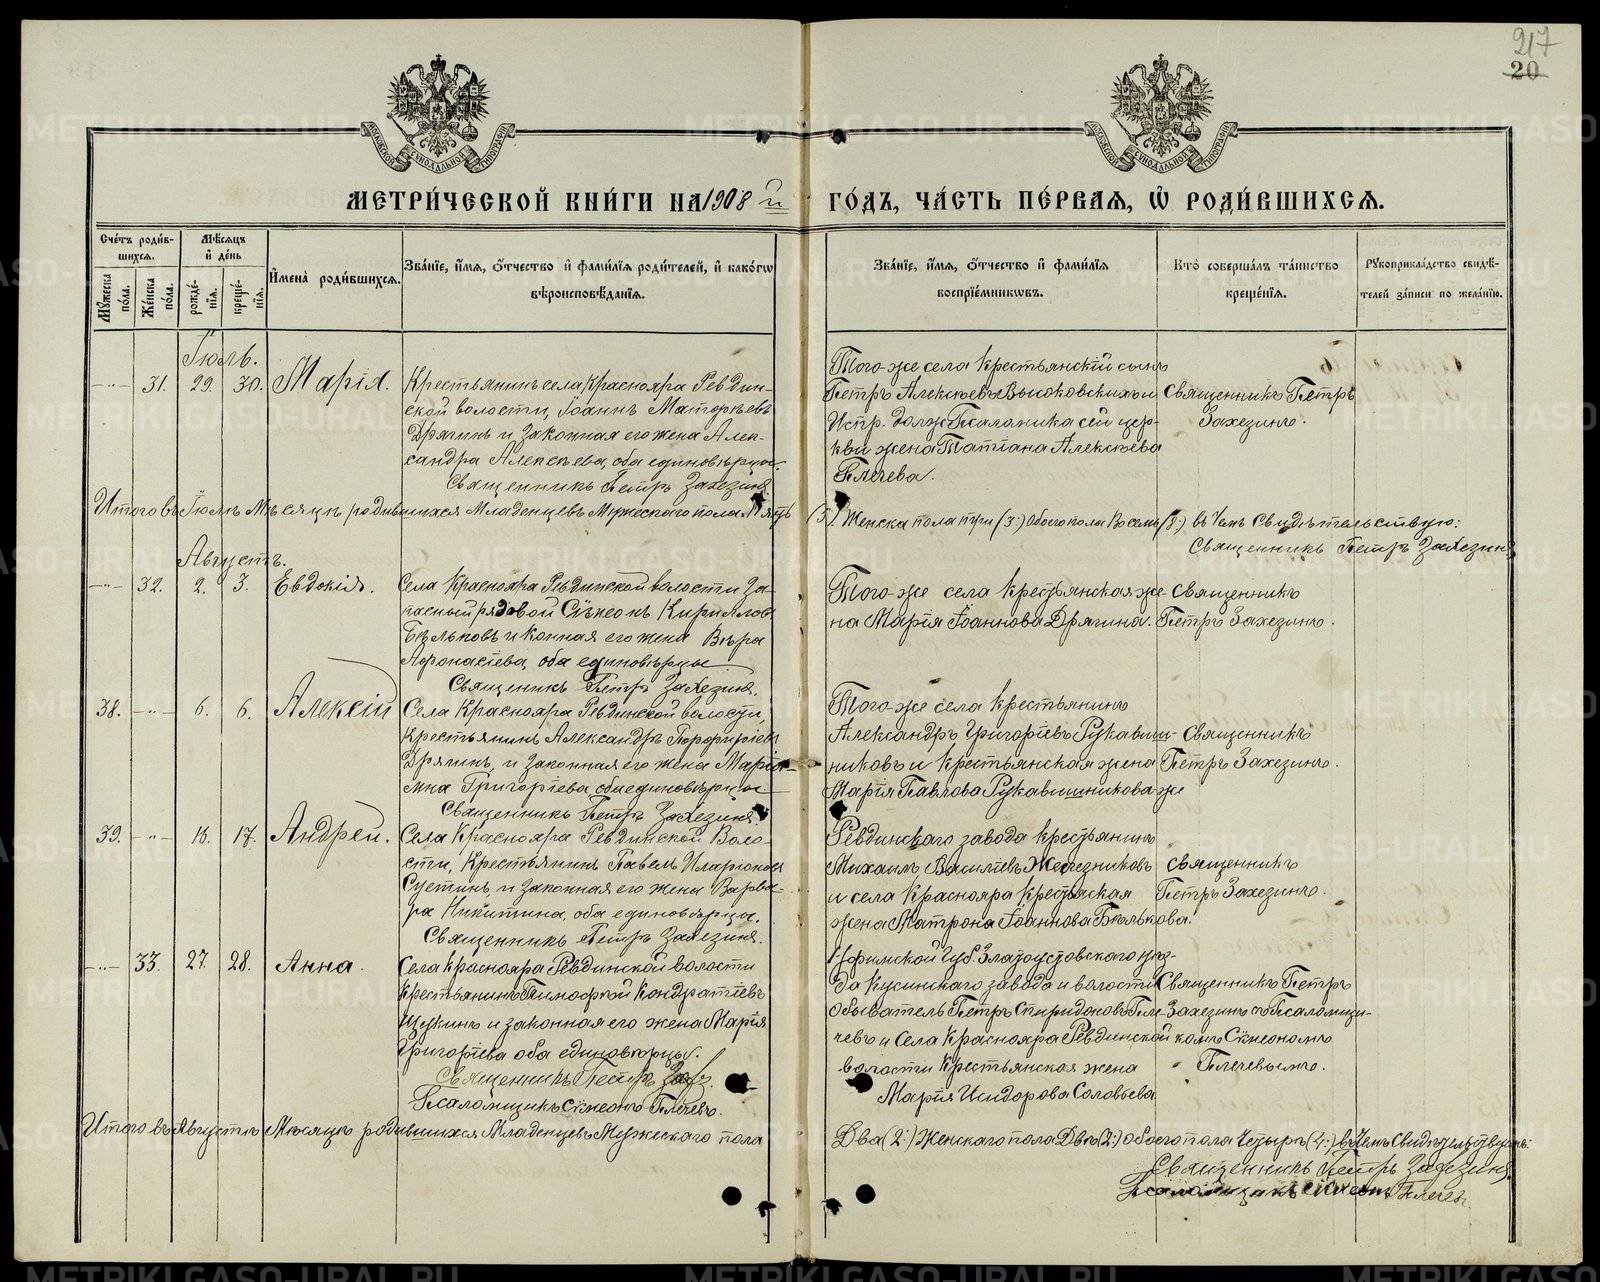 217
20
МОСКОВСКОЙ СѴНОДАЛЬНОЙ ТИПОГРАФІИ
МОСКОВСКОЙ СѴНОДАЛЬНОЙ ТИПОГРАФІИ
МЕТРИ́ЧЕСКОЙ КНИ́ГИ НА 1908 й ГО́ДЪ, ЧА́СТЬ ПЕ́РВАЯ, Ѿ РОДИ́ВШИХСЯ.
Сче́тъ роди́в-
шихся.
Мꙋжеска по́ла.
Же́нска по́ла.
Мѣ́сяцъ
и҆ де́нь
рожде́-
нїя.
креще́-
нїя.
И҆мена̀ роди́вшихся.
Зва́нїе, и҆́мя, ѻ҆́тчество и҆ фами́лїя роди́телей, и҆ како́гѡ
вѣроисповѣ́данїя.
Зва́нїе, и҆́мя, ѻ҆́тчество и҆ фами́лїя
воспрїе́мникѡвъ.
Кто̀ соверша́лъ та́инство
креще́нїя.
Рꙋкоприкла́дство свидѣ́-
телей за́писи по жела́нїю.
Іюль.
31. 29. 30. Марія.
Крестьянинъ села Краснояра Ревдин-
ской волости, Іоаннъ Матѳѣевъ
Дрягинъ и Законная его жена Алек-
сандра Алексѣева, оба единовѣрцы.
Священникъ Петръ Захезинъ.
Того-же села Крестьянскій сынъ
Петръ Алексѣевъ Высоковскихъ и
Испр. долж. Псаломщика сей цер-
кви жена Татіана Алексѣева
Плечева.
Священникъ Петръ
Захезинъ.
Итого въ Іюлѣ Мѣсяцѣ родившихся Младенцевъ Мужескаго пола Пять (5) Женска пола три (3:) Обоего пола Восемь (8:) въ чемъ Свидѣтельствую:
Священникъ Петръ Захезинъ
Августъ.
32. 2. 3. Евдокія.
Села Краснояра Ревдинской волости За-
пасный рядовой Сѵмеонъ Кирилловъ
Бѣльковъ и Конная его жена Вѣра
Афонасіева, оба единовѣрцы
Священникъ Петръ Захезинъ.
Того-же села Крестьянская же-
на Марія Іоаннова Дрягина.
Священникъ
Петръ Захезинъ.
38. 6. 6. Алексій
Села Краснояра Ревдинской волости,
Крестьянинъ Александръ Порфиріевъ
Дрягинъ, и Законная его жена Маріа-
мна Григоріева, оба единовѣрцы.
Священникъ Петръ Захезинъ.
Того-же села Крестьянинъ
Александръ Григоріевъ Рукавиш-
никовъ и Крестьянская жена
Марія Павлова Рукавишникова же
Священникъ
Петръ Захезинъ.
39. 16. 17. Андрей.
Села Краснояра Ревдинской Воло-
сти, Крестьянинъ Павелъ Иларіоновъ
Суетинъ и Законная его жена Варва-
ра Никитина, оба единовѣрцы.
Священникъ Петръ Захезинъ.
Ревдинскаго завода Крестьянинъ
Михаилъ Василіевъ Желѣзниковъ
и села Краснояра Крестьянская
жена Матрона Іоаннова Бѣлькова.
Священникъ
Петръ Захезинъ.
33. 27. 28. Анна.
Села Краснояра Ревдинской волости
Крестьянинъ Тимофей Кондратіевъ
Щукинъ и законная его жена Марія
Григоріева оба единовѣрцы.
Священникъ Петръ Зах.
Псаломщикъ Сѵмеонъ Плечевъ.
Уфимской Губ. Златоустовскаго уѣз-
да Кусинскаго завода и волости
обыватель Петръ Спиридоновъ Пле-
чевъ и Села Краснояра Ревдинской
волости Крестьянская жена
Марія Исидорова Соловьева
Священникъ Петръ
Захезинъ съ Псаломщи-
комъ Сѵмеономъ
Плечевымъ.
Итого въ Августѣ Мѣсяцѣ родившихся Младенцевъ Мужескаго пола Два (2:) Женскаго пола Двѣ (2:) обоего пола Четыре (4:) въ чемъ Свидѣтельствуемъ:
Священникъ Петръ Захезинъ.
Псаломщикъ Сѵмеонъ Плечевъ
METRIKI.GASO-URAL.RU